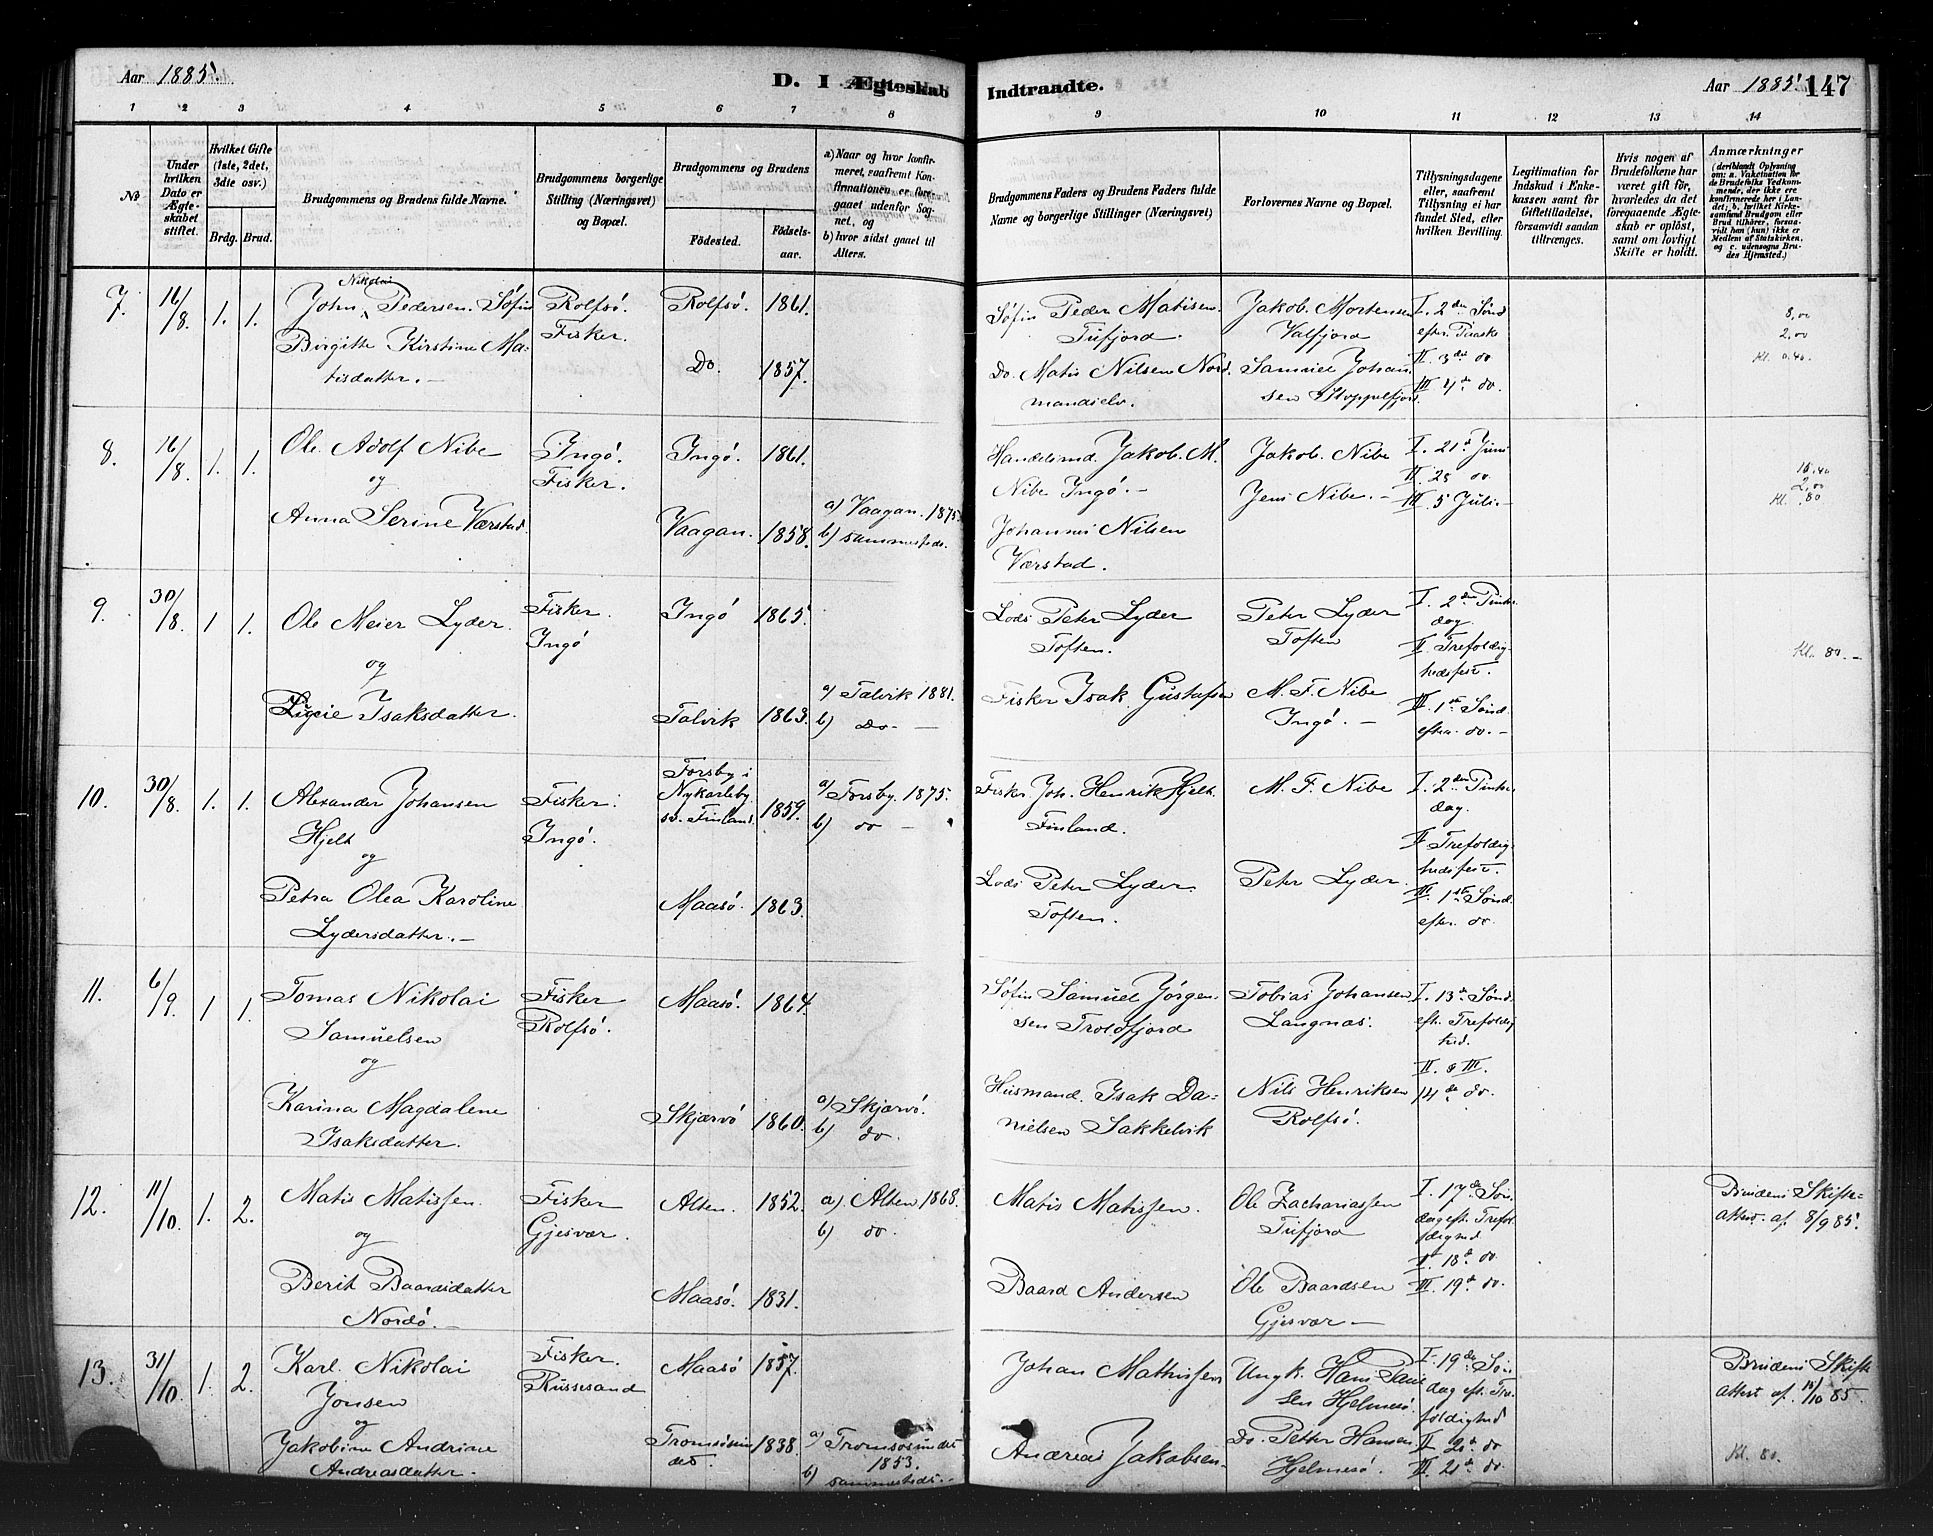 Aar 1885.
D. I Ægteskab Indtraadte.
Aar 1885. 147
1 2 3 4 5 6 7 8 9 10 11 12 13 14
No
Under hvilken Dato er Ægteskabet stiftet.
Hvilket Gifte (1ste, 2det, 3die osv.)
Brdg. Brud.
Brudgommens og Brudens fulde Navne.
Brudgommens borgerlige Stilling (Næringsvei) og Bopæl.
Brudgommens og Brudens
Födested.
Födselsaar.
a) Naar og hvor konfirmeret, saafremt Konfirmationen er foregaaet udenfor Sognet, og
b) hvor sidst gaaet til Alters.
Brudgommens Faders og Brudens Faders fulde Navne og borgerlige Stillinger (Næringsvei)
Forlovernes Navne og Bopæl.
Tillysningsdagene eller, saafremt Tillysning ei har fundet Sted, efter hvilken Bevilling.
Legitimation for Indskud i Enkekassen samt for Giftetilladelse, forsaavidt saadan tiltrænges.
Hvis nogen af Brudefolkene har været gift før, hvorledes da det foregaaende Ægteskab er oplöst, samt om lovligt Skifte er holdt.
Anmærkninger
7. 16/8. 1. 1.
John Nikolai Pedersen. Söfin
Birgitte Kirstine Matisdatter. –
Rolfsö. Fisker.
Rolfsö. 1861.
Do. 1857.
Söfin Peder Matisen. Tufjord.
Do. Matis Nilsen Nordmandselv.
Jakob Mortensen Valfjord
Samuel Johansen Stoppelfjord.
I. 2den Sönd efter Paaske
II. 3die do
III. 4de do.
8,00
2,00
Kl. 0.40
8. 16/8. 1. 1.
Ole Adolf Nibe
og
Anna Serine Værstad
Ingö. Fisker.
Ingö. 1861.
Vaagan. 1858.
a) Vaagan. 1875.
b) sammesteds.
Handelsmd. Jakob. M. Nibe Ingö. –
Johannes Nilsen Værstad.
Jakob. Nibe
Jens Nibe. –
I. 21de Juni
II. 28 do
III. 5 Juli. –
2,00
Kl. 80
9. 30/8. 1 1.
Ole Meier Lyder.
og
Isaksdatter.
Fisker. Ingö
Ingö 1865.
Talvik 1863.
a) Talvik 1881.
b) Do –
Lods Peter Lyder Toften.
Fisker Isak Gustafsen
Peter Lyder Toften
M. F. Nibe Ingö. –
I. 2den Pintsedag.
II. Trefoldighedsfest.
III. 1ste Sönd. efter do. –
Kl. 80. –
10. 30/8. 1. 1.
Alexander Johansen Hjelt
og
Petra Olea Karoline Lydersdatter. –
Fisker. Ingö.
Forsby i Nykarleby Finland. 1859.
Maasö. 1863.
a) Forsby. 1875.
b) do –
Fisker Joh. Henrik Hjelt. Finland.
Lods Peter Lyder. Toften.
M. F. Nibe
Peter Lyder.
I. 2den Pintsedag.
II Trefoldighedsfest.
III. 1ste Sönd. efter. do.
11. 6/9. 1 1.
Tomas Nikolai Samuelsen
og
Karina Magdalene Isaksdatter.
Fisker Rolfsö.
Maasö. 1864.
Skjærvö 1860.
a) Skjærvö.
b) do.
Söfin Samuel Jörgensen Troldfjord
Husmand. Isak Danielsen Sakkelvik
Tobias Johansen Langnæs.
Nils Henriksen Rolfsö.
I. 13de Sönd. eft. Trefoldighed.
II. & III. 14de do.
12. 11/10. 1. 2.
Matis Matissen.
og
Berit Baardsdatter Nordö. –
Fisker Gjesvær.
Alten. 1852.
Maasö. 1831.
a). Alten 1868.
b) do.
Matis Matissen.
Baard Andersen
Ole Zachariassen Tufjord
Ole Baardsen Gjesvær –
I. 17de Söndag eft. Trefoldighed.
II 18de do.
III. 19de do.
Brudens Skifteattest. af. 8/9 85.
13. 31/10. 1. 2.
Karl. Nikolai Jonsen
og
Jakobine Andrine Andreasdatter. –
Fisker. Russesand
Maasö 1857.
Tromsösundet. 1838.
a) Tromsösundet 1853.
b) sammesteds. –
Johan Mathissen
Andreas Jakobsen
Ungk. Hans Paulsen Hjelmsö.
Do. Petter Hansen Hjelmsö.
I. 19de Söndag eft. Trefoldighed
II. 20de do
III. 21de do.
Brudens Skifteattest af. 15/10 85.
Kl. 80.